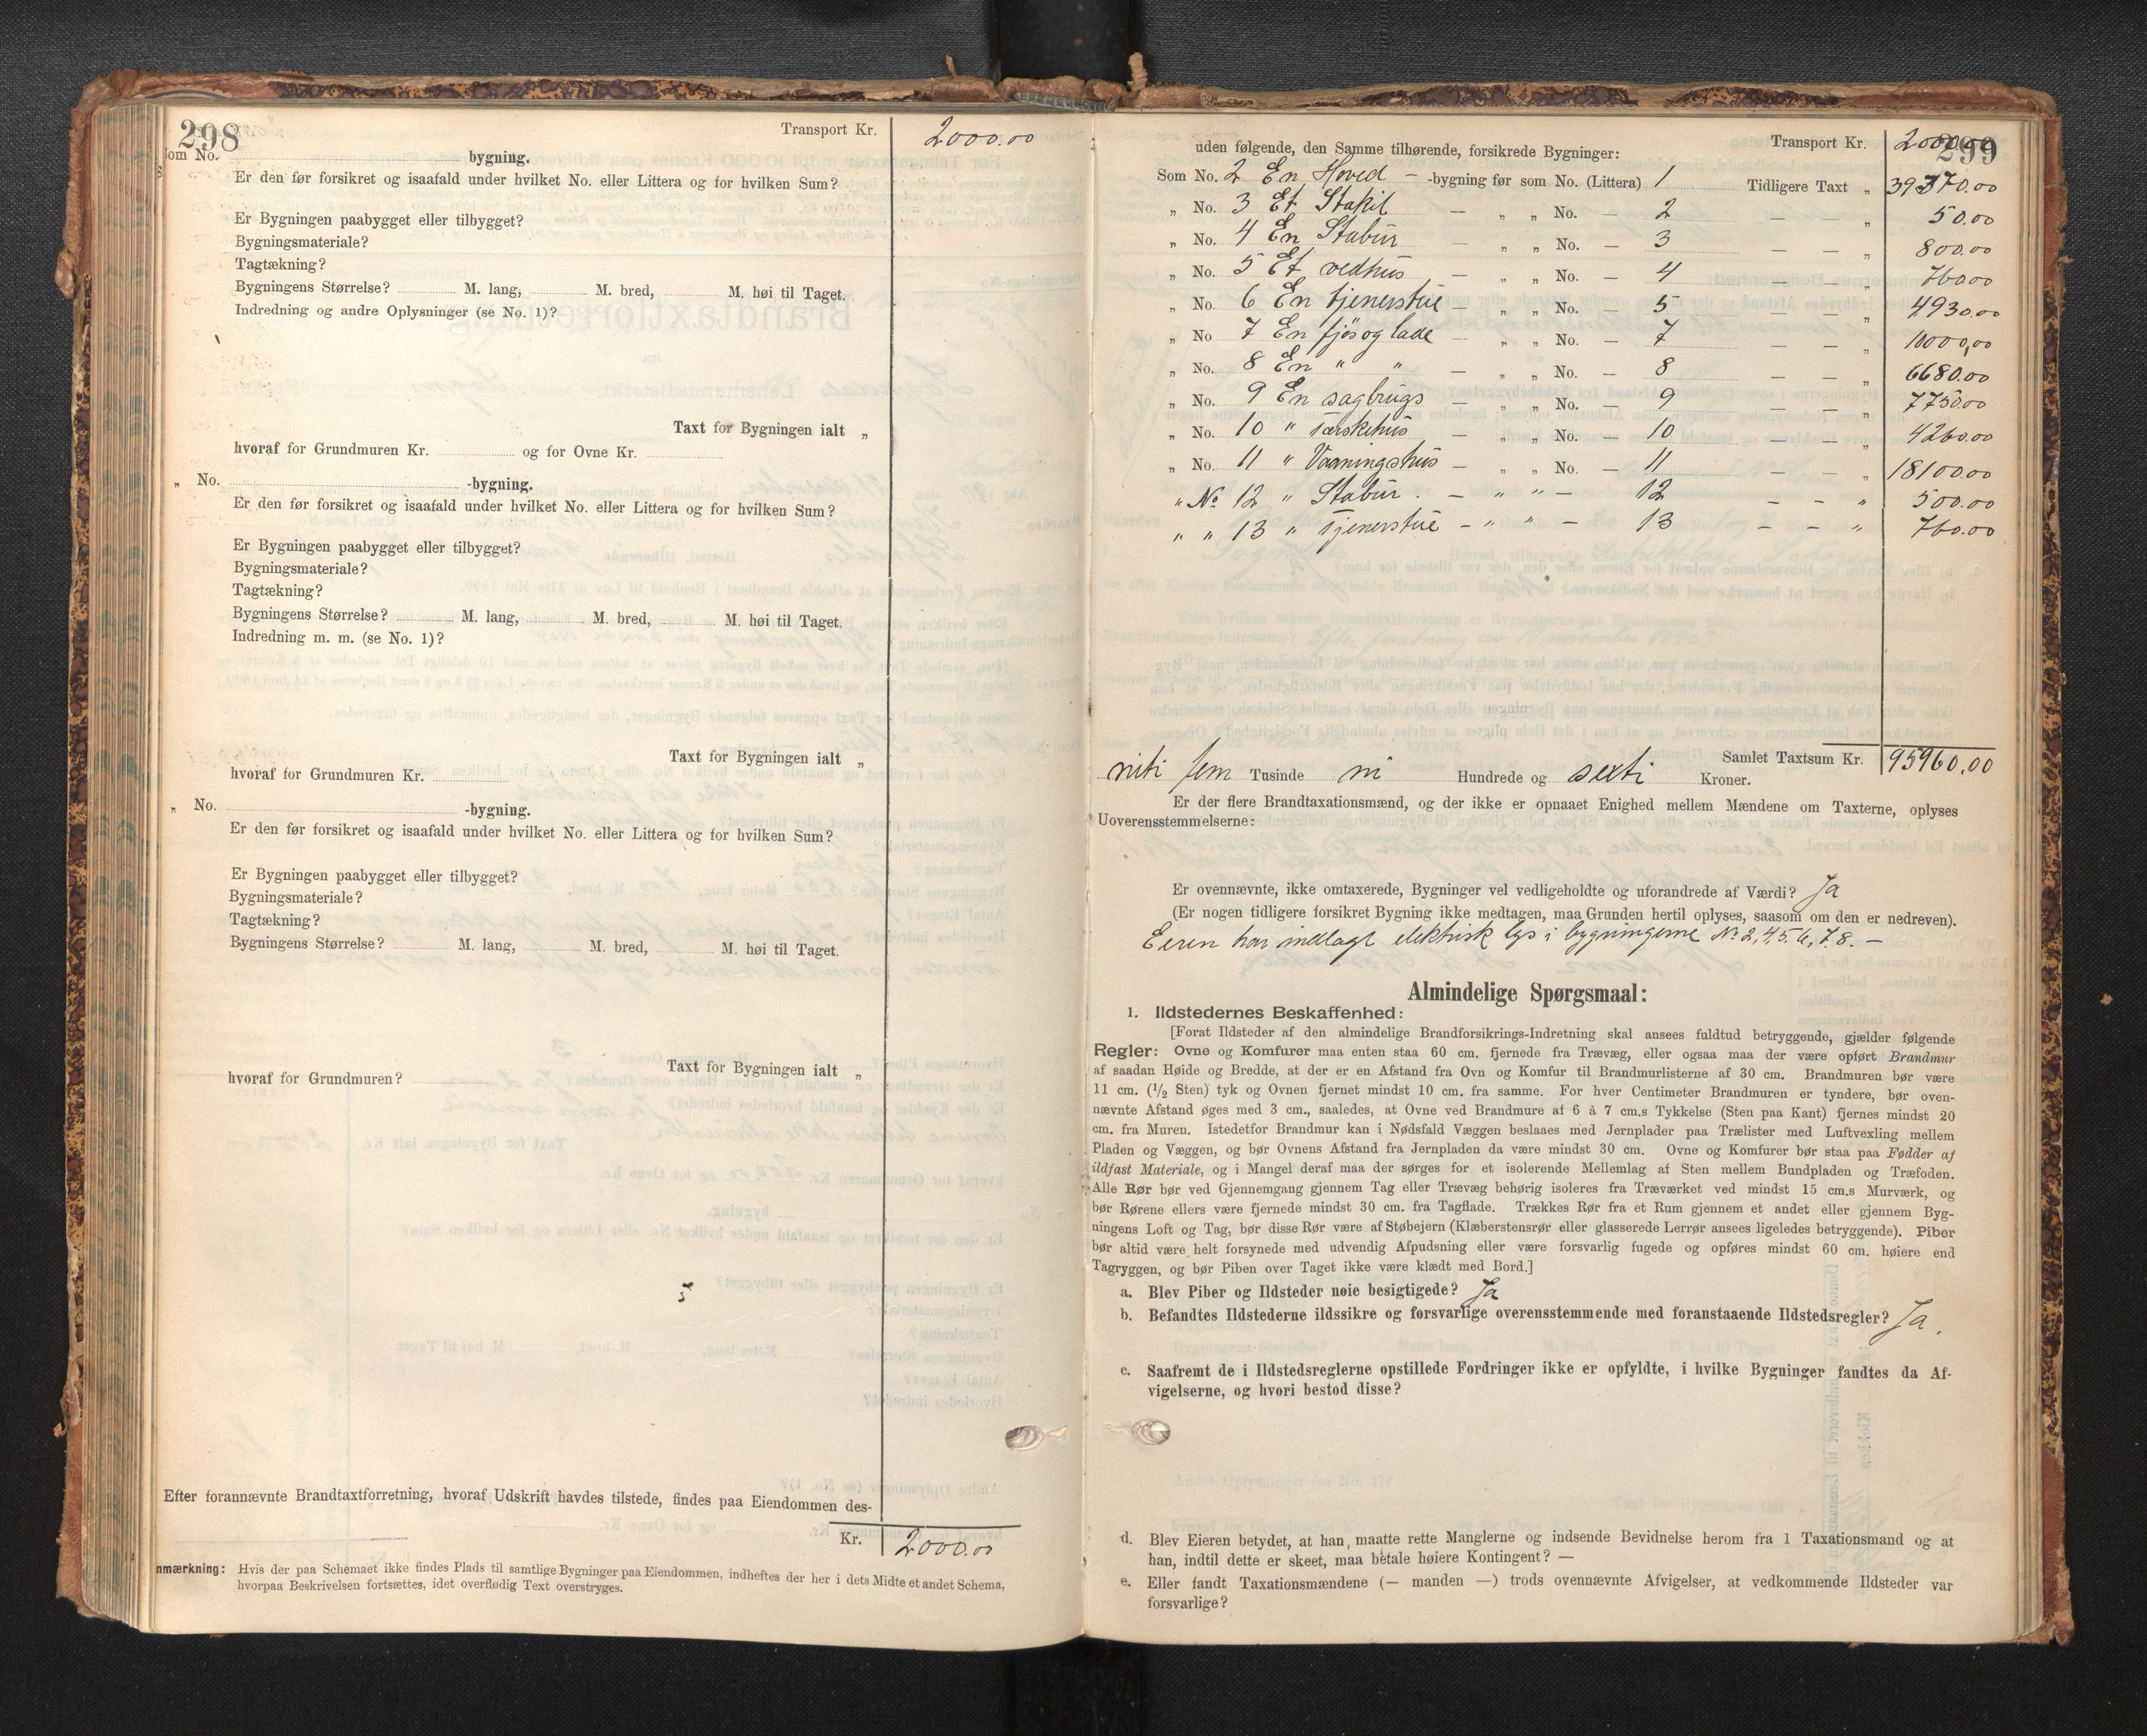 298
Transport Kr. 2000.00
Som No. bygning.
Er den før forsikret og isaafald under hvilket No. eller Littera og for hvilken Sum?
Er Bygningen paabygget eller tilbygget?
Bygningsmateriale?
Tagtækning?
Bygningens Størrelse? M. lang, M. bred, M. høi til Taget.
Indredning og andre Oplysninger (se No. 1)?
Taxt for Bygningen ialt „
hvoraf for Grundmuren Kr. og for Ovne Kr.
„ No. -bygning.
Er den før forsikret og isaafald under hvilket No. eller Littera og for hvilken Sum?
Er Bygningen paabygget eller tilbygget?
Bygningsmateriale?
Tagtækning?
Bygningens Størrelse? M. lang, M. bred, M. høi til Taget.
Indredning m. m. (se No. 1)?
Taxt for Bygningen ialt „
hvoraf for Grundmuren Kr.
„ No. -bygning.
Er den før forsikret og isaafald under hvilket No. eller Littera og for hvilken Sum?
Er Bygningen paabygget eller tilbygget?
Bygningsmateriale?
Tagtækning?
Bygningens Størrelse? M. lang, M. bred, M. høi til Taget.
Taxt for Bygningen ialt „
hvoraf for Grundmuren?
Efter forannævnte Brandtaxtforretning, hvoraf Udskrift havdes tilstede, findes paa Eiendommen des-
Kr. 2000.00
nmærkning: Hvis der paa Schemaet ikke findes Plads til samtlige Bygninger paa Eiendommen, indheftes der her i dets Midte et andet Schema,
hvorpaa Beskrivelsen fortsættes, idet overflødig Text overstryges.
299
Transport Kr. 2000.00
uden følgende, den Samme tilhørende, forsikrede Bygninger:
Som No. 2 En Hoved - -bygning før som No. (Littera) 1 Tidligere Taxt „ 39370.00
„ No. 3 Et Stakit — „ „ No. — 2 — — „ 50.00
„ No. 4 En Stabur — „ „ No. — 3 — — „ 800.00
„ No. 5 Et vedhus — „ „ No. — 4 — — „ 760.00
„ No. 6 En tjenerstue — „ „ No. — 5 — — „ 4930.00
„ No 7 En fjøs og lade — „ „ No. — 7 — — „ 10000,00
„ No. 8 En " " — „ „ No. — 8 — — „ 6680.00
„ No. 9 En sagbrugs — „ „ No. — 9 — — „ 7750.00
„ No. 10 " Tærskehus — „ „ No. — 10 — — „ 4260.00
„ No. 11 " Vaaningshus — „ „ No. — 11 — — „ 18100.00
" No 12 " Stabur. — " " — 12 — — " 500.00
" " 13 " Tjenerstue — " " — 13 — — " 760.00
Samlet Taxtsum Kr. 95960.00
niti fem Tusinde ni Hundrede og sexti Kroner.
Er der flere Brandtaxationsmænd, og der ikke er opnaaet Enighed mellem Mændene om Taxterne, oplyses
Uoverensstemmelserne:
Er ovennævnte, ikke omtaxerede, Bygninger vel vedligeholdte og uforandrede af Værdi? Ja
(Er nogen tidligere forsikret Bygning ikke medtagen, maa Grunden hertil oplyses, saasom om den er nedreven).
Eieren har indlagt elektrisk lys i bygningerne No 2, 4, 5. 6, 7. 8. —
Almindelige Spørgsmaal:
1. Ildstedernes Beskaffenhed:
[Forat Ildsteder af den almindelige Brandforsikrings-Indretning skal ansees fuldtud betryggende, gjælder følgende
Regler: Ovne og Komfurer maa enten staa 60 cm. fjernede fra Trævæg, eller ogsaa maa der være opført Brandmur
af saadan Høide og Bredde, at der er en Afstand fra Ovn og Komfur til Brandmurlisterne af 30 cm. Brandmuren bør være
11 cm. (1/2 Sten) tyk og Ovnen fjernet mindst 10 cm. fra samme. For hver Centimeter Brandmuren er tyndere, bør oven-
nævnte Afstand øges med 3 cm., saaledes, at Ovne ved Brandmure af 6 à 7 cm.s Tykkelse (Sten paa Kant) fjernes mindst 20
cm. fra Muren. Istedetfor Brandmur kan i Nødsfald Væggen beslaaes med Jernplader paa Trælister med Luftvexling mellem
Pladen og Væggen, og bør Ovnens Afstand fra Jernpladen da være mindst 30 cm. Ovne og Komfurer bør staa paa Fødder af
ildfast Materiale, og i Mangel deraf maa der sørges for et isolerende Mellemlag af Sten mellem Bundpladen og Træfoden.
Alle Rør bør ved Gjennemgang gjennem Tag eller Trævæg behørig isoleres fra Træværket ved mindst 15 cm.s Murværk, og
bør Rørene ellers være fjernede mindst 30 cm. fra Tagflade. Trækkes Rør fra et Rum gjennem et andet eller gjennem Byg-
ningens Loft og Tag, bør disse Rør være af Støbejern (Klæberstensrør eller glasserede Lerrør ansees ligeledes betryggende). Piber
bør altid være helt forsynede med udvendig Afpudsning eller være forsvarlig fugede og opføres mindst 60 cm. høiere end
Tagryggen, og bør Piben over Taget ikke være klædt med Bord.]
a. Blev Piber og Ildsteder nøie besigtigede? Ja
b. Befandtes Ildstederne ildssikre og forsvarlige overensstemmende med foranstaaende Ildstedsregler? Ja.
c. Saafremt de i Ildstedsreglerne opstillede Fordringer ikke er opfyldte, i hvilke Bygninger fandtes da Af-
vigelserne, og hvori bestod disse?
d. Blev Eieren betydet, at han maatte rette Manglerne og indsende Bevidnelse herom fra 1 Taxationsmand og at
han, indtil dette er skeet, maa betale høiere Kontingent? —
e. Eller fandt Taxationsmændene (— manden —) trods ovennævnte Afvigelser, at vedkommende Ildsteder var
forsvarlige?